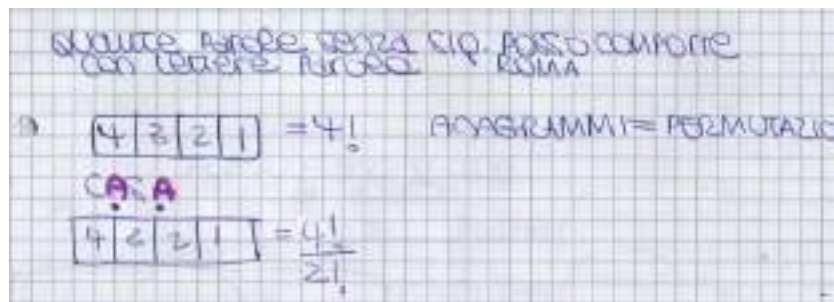 QUANTE PAROLE SENZA RIP. POSSO COMPORRE
CON LETTERE PAROLA ROMA
4 3 2 1 = 4! ANAGRAMMI = PERMUTAZIO
CASA
4 3 2 1 = 4!
2!